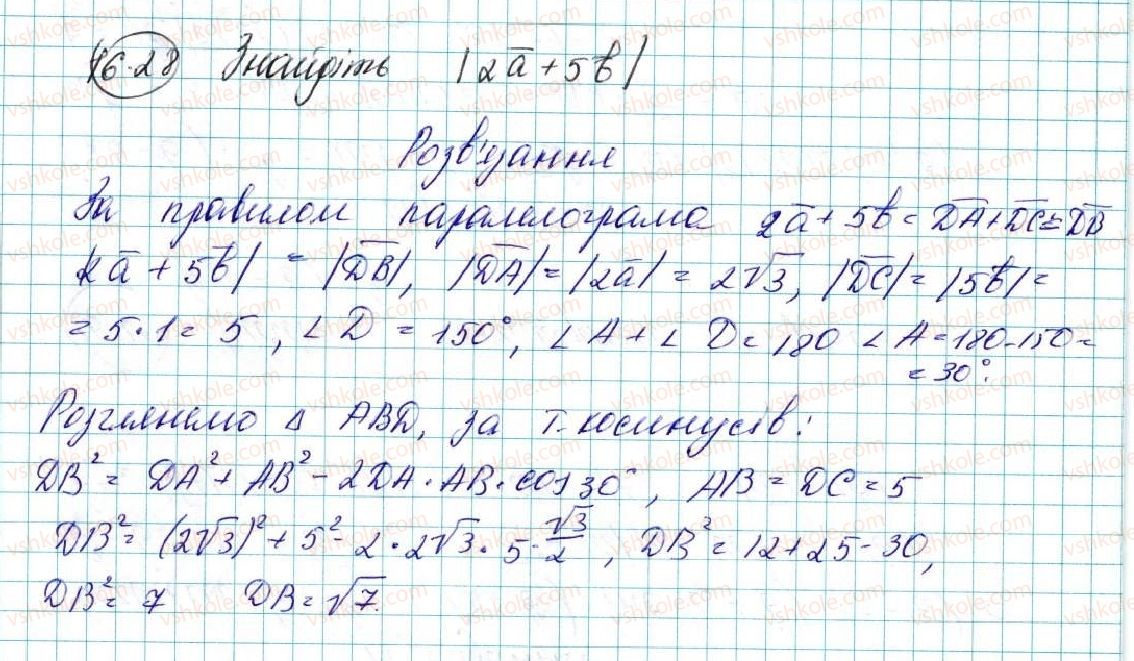 16.28 Знайдіть |2a̅ + 5b̅|
Розв'язання
За правилом паралелограма 2a̅ + 5b̅ = D̅A̅ + D̅C̅ = D̅B̅
|2a̅ + 5b̅| = |D̅B̅|, |D̅A̅| = |2a̅| = 2√3, |D̅C̅| = |5b̅| =
= 5·1 = 5, ∠D = 150°, ∠A + ∠D = 180 ∠A = 180 - 150 =
= 30°.
Розглянемо Δ ABD, за т. косинусів:
DB² = DA² + AB² - 2DA · AB · cos 30°, AB = DC = 5
DB² = (2√3)² + 5² - 2 · 2√3 · 5 · √3/2, DB² = 12 + 25 - 30,
DB² = 7 DB = √7.